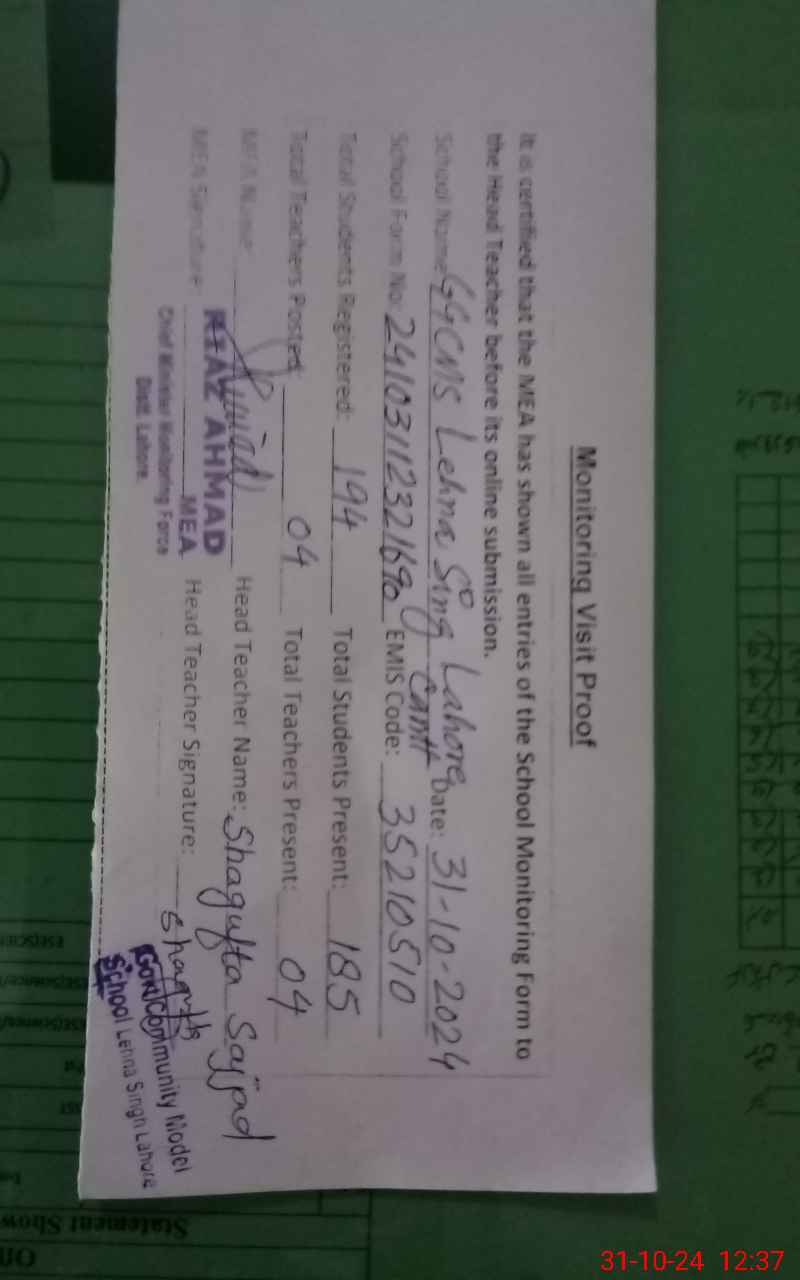 Monitoring Visit Proof
It is certified that the MEA has shown all entries of the School Monitoring Form to
the Head Teacher before its online submission.
School Name: GGCMS Lehna Sing Lahore Cantt Date: 31-10-2024
School Form No: EMIS Code: 35210510
Total Students Registered: 194 Total Students Present: 185
Total Teachers Posted: 04 Total Teachers Present: 04
MEA Name: Head Teacher Name: Shagufta Sajjad
MEA Signature: Head Teacher Signature: Shagufta
RIAZ AHMAD
MEA
Chief Minister Monitoring Force
Distt. Lahore.
Govt Community Model
School Lehna Singh Lahore
Statement Show
31-10-24 12:37